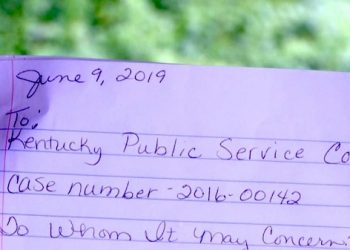 June 9, 2019
To:
Kentucky Public Service Co
Case number - 2016-00142
To Whom It May Concern